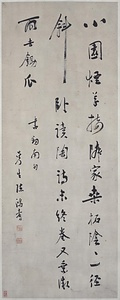 小園煙草接鄰家桑柘陰〻一徑
斜卧讀陶詩未終卷又乘微
雨去鋤瓜